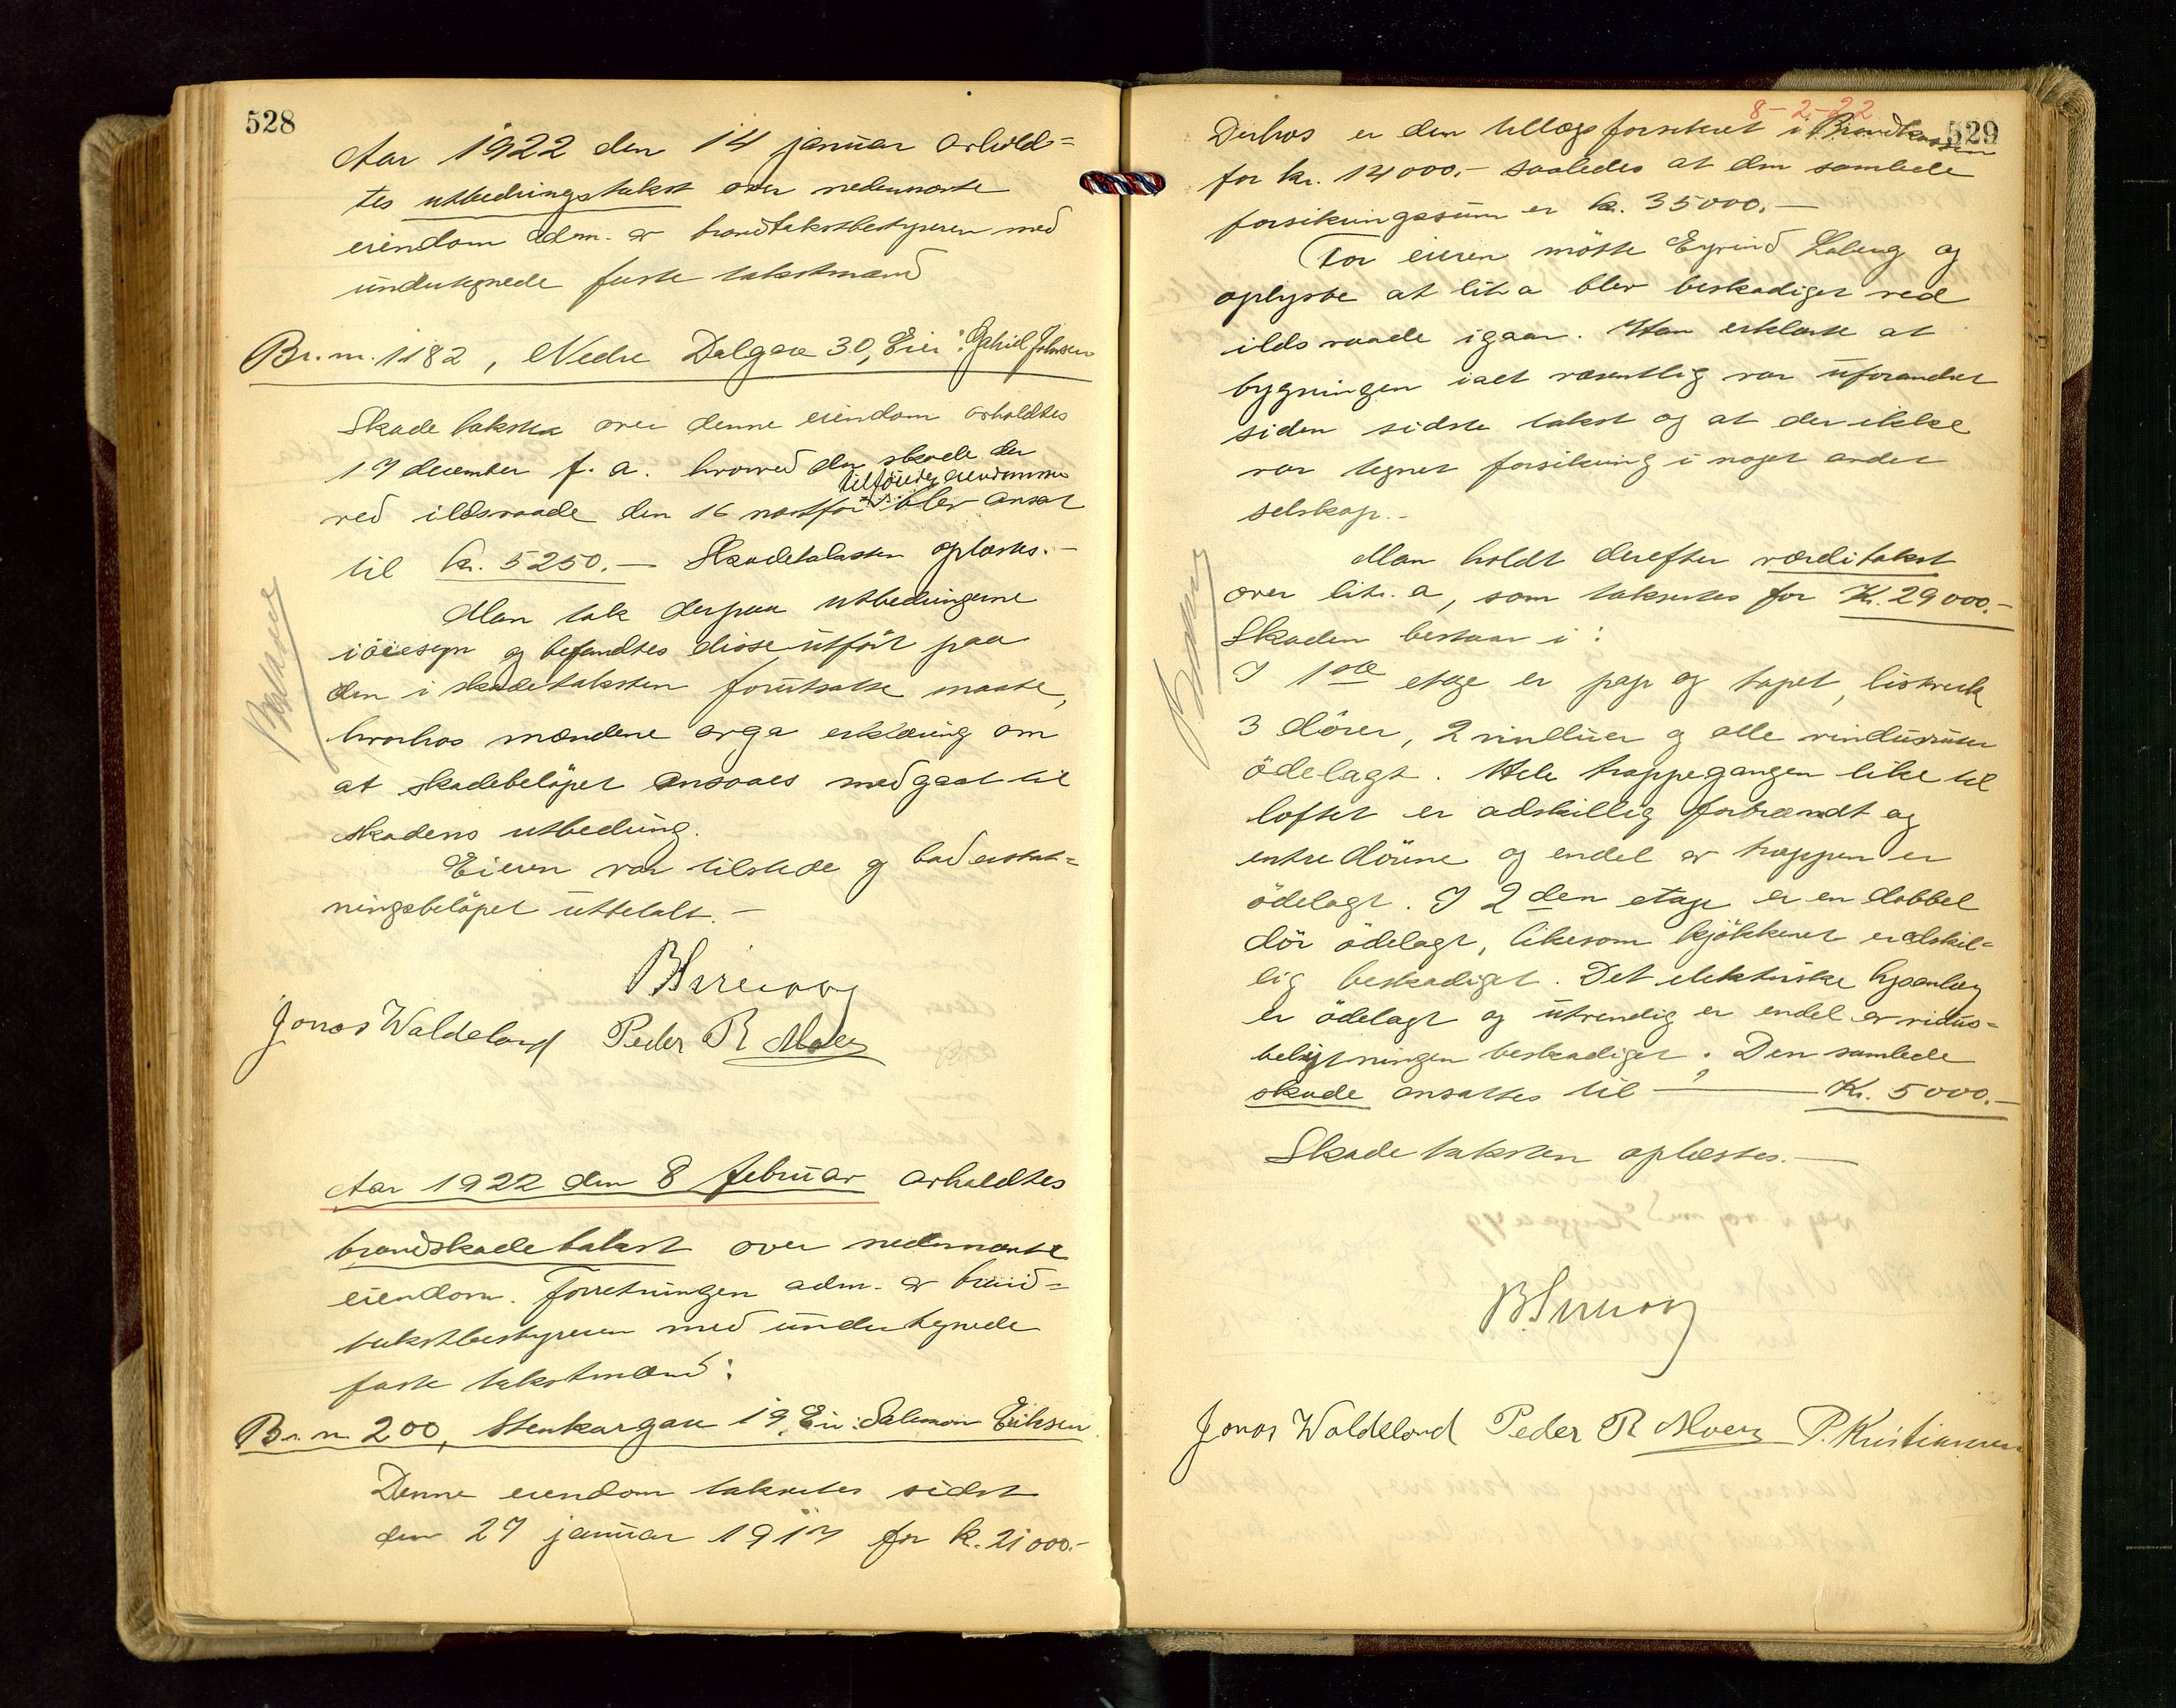 528
Aar 1922 den 14 januar avhold-
tes utbedringstakst over nedennævnte
eiendom adm. av brandtakstbestyreren med
undertegnede faste takstmænd
Br. nr. 1182, Nedre Dalgate 30, Eier: Johnsen
Skadetakst over denne eiendom avholdtes
17 december f. a. hvorved den skade der
tilföiedes eiendommen
ved ildsvaade den 16 næstfør blev ansat
til kr. 5250.- Skadetaksten oplæstes.-
Man tok derpaa utbedringerne
iöiesyn og befandtes disse utfört paa
den i skadetaksten forutsatte maate,
hvorhos mændene avga erklæring om
at skadebelöpet ansaaes medgaat til
skadens utbedring.
Eieren var tilstede og bad erstat-
ningsbelöpet utbetalt.-
Jonas Waldeland Peder R Moen
Aar 1922 den 8 februar avholdtes
brandskadetakst over nedennævnte
eiendom. Forretningen adm. av brand-
takstbestyreren med undertegnede
faste takstmænd:
Br. nr. 200, Stenkargaten 19, Eier: Salomon Eriksen.
Denne eiendom takseres sidst
den 27 januar 1917 for k. 21000.-
8-2-22
529
Derhos er den tillægsforsikret i Brandkassen
for kr. 14000.- saaledes at den samlede
forsikringssum er k. 35000.-
For eieren mötte Eyvind Laberg og
oplyste at litr a blev beskadiget ved
ildsvaade igaar. Han erklærte at
bygningen ialt væsentlig var uforandret
siden sidste takst og at der ikke
var tegnet forsikring i noget andet
selskap.-
Man holdt derefter værditakst
over litr. a, som takseres for Kr. 29000.-
Skaden bestaar i:
I 1ste etage er pap og tapet, listverk,
3 dörer, 2 vinduer og alle vindusruter
ödelagt. Hele trappegangen like til
loftet er adskillig forbrændt og
entredörene og endel av trappen er
ödelagt. I 2den etage er en dobbel
dör ödelagt, likesom kjökkenet er adskil-
lig beskadiget. Det elektriske lysanlæg
er ödelagt og utvendig er endel av vindus-
belistningen beskadiget. Den samlede
skade ansattes til Kr. 5000.-
Skadetaksten oplæstes.-
Jonas Waldeland Peder R Moen P. Kristiansen